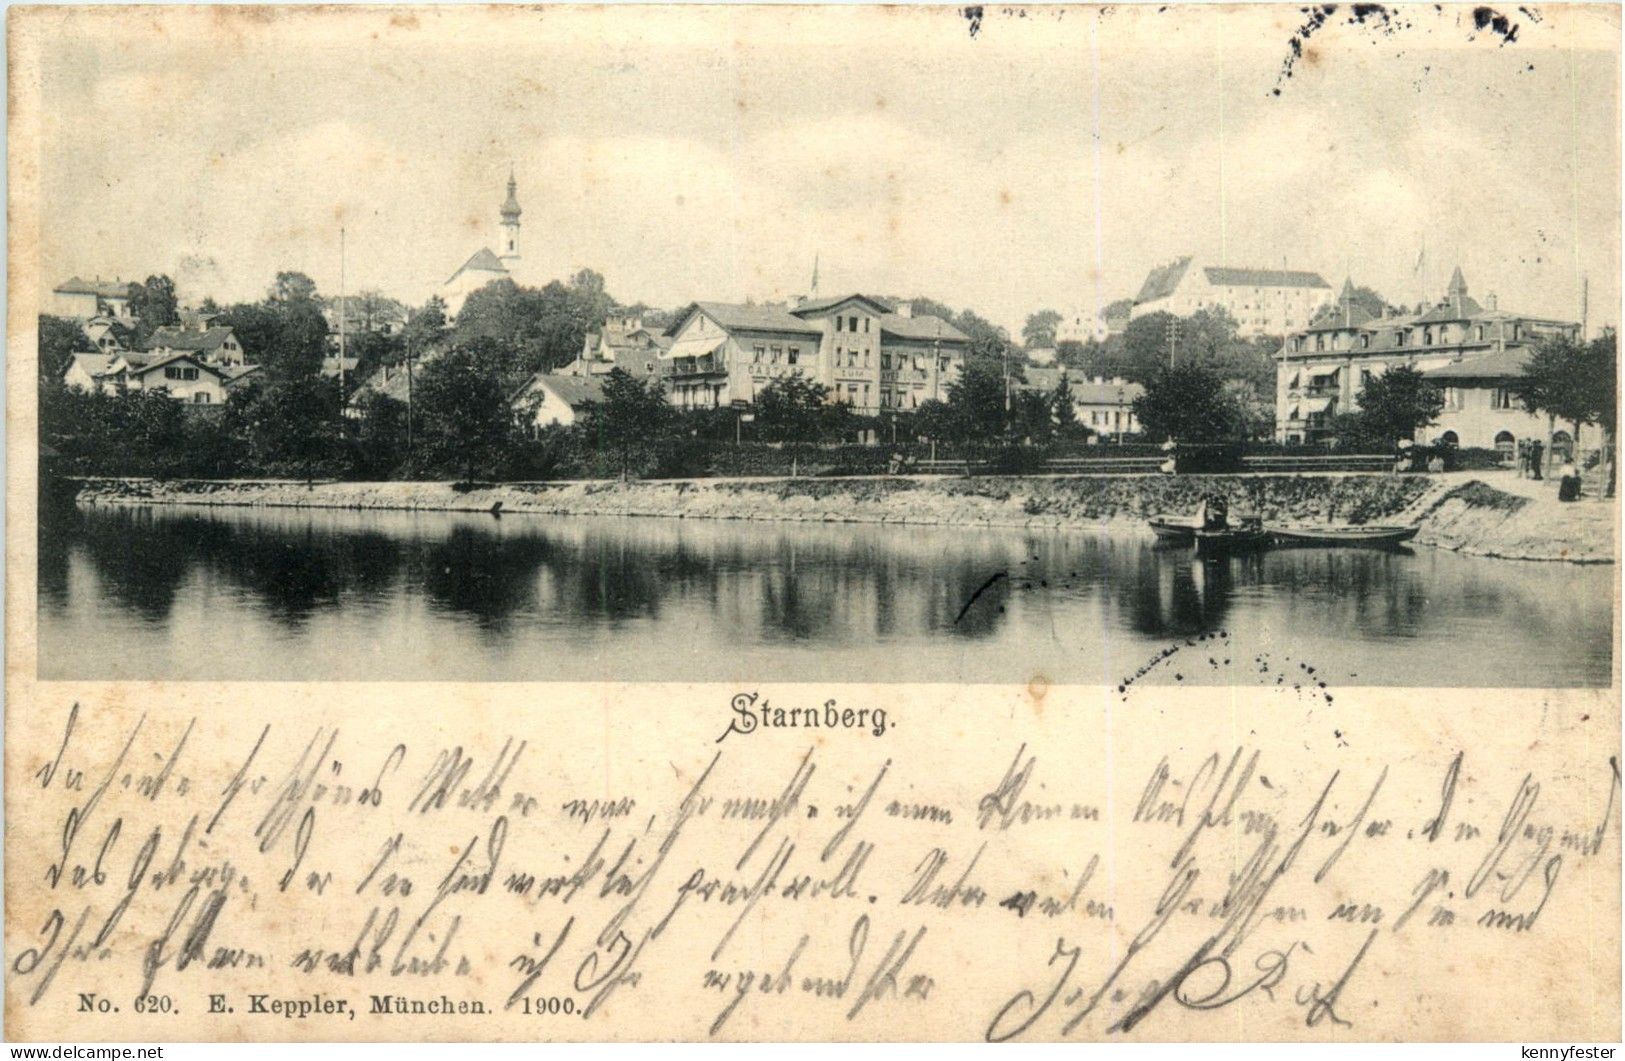 GAST
ZUM
Starnberg.
Da heute so schönes Wetter war, so machte ich einen kleinen Ausflug hieher. Die Gegend
das Gebirge, der See sind wirklich prachtvoll. Unter vielen Grüßen an Sie und
Ihre Eltern verbleibe ich Ihr ergebenster Joseph
No. 620. E. Keppler, München. 1900.
delcampe.net
kennyfester